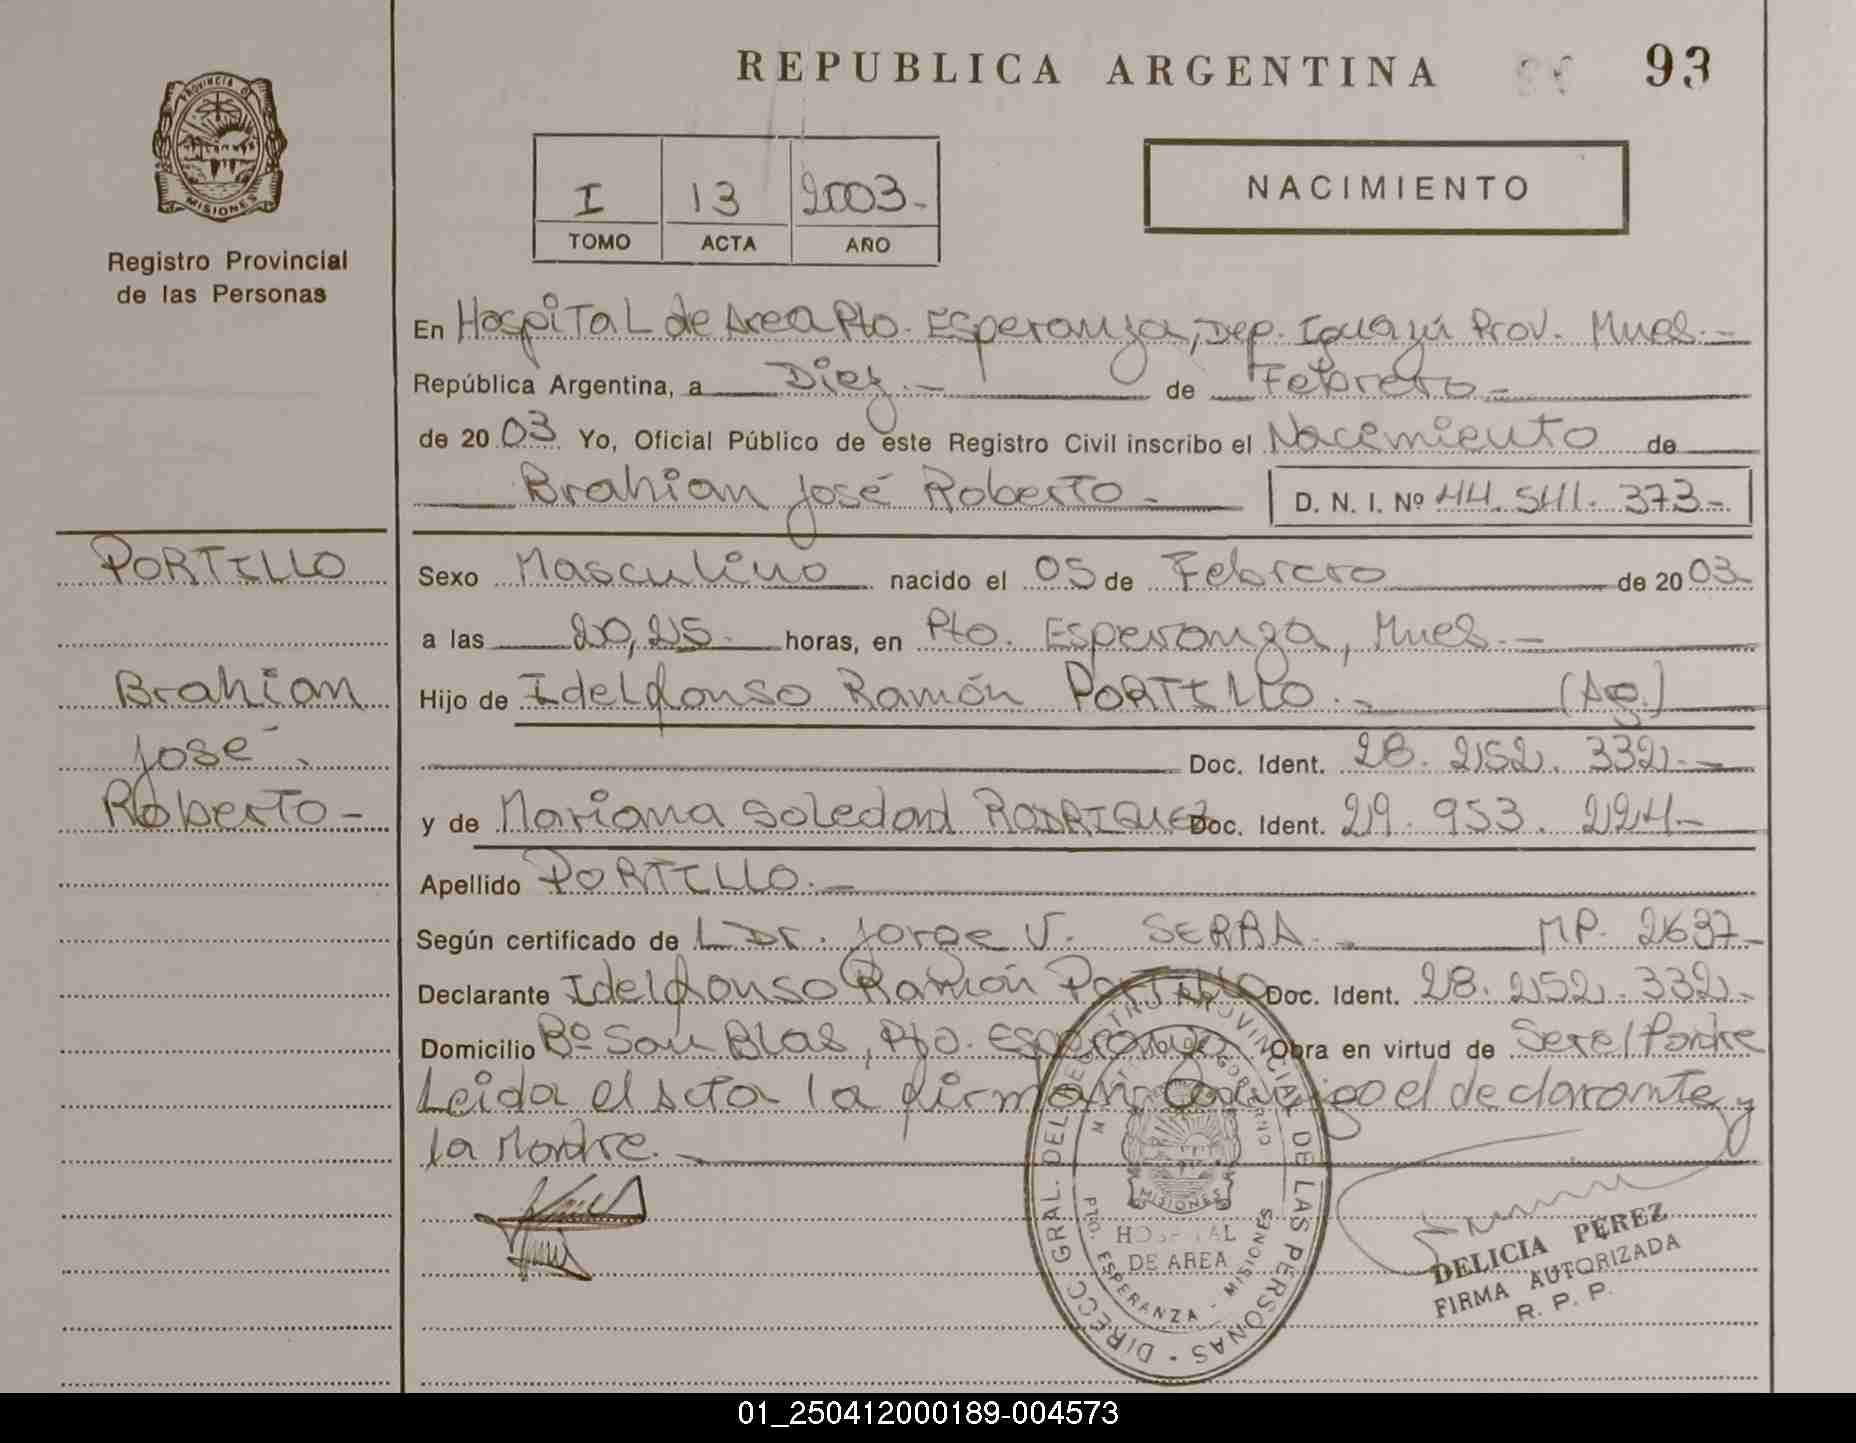 REPUBLICA ARGENTINA 93
PROVINCIA D
MISIONES
Registro Provincial
de las Personas
I 13 2003-
TOMO ACTA AÑO
NACIMIENTO
En Hospital de Area Pto. Esperanza, Dep. Iguazú Prov. Mnes.-
República Argentina, a Diez.- de Febrero-
de 2003 Yo, Oficial Público de este Registro Civil inscribo el Nacimiento de
Brahian José Roberto- D. N. I. Nº 44.541.373-
PORTILLO
Brahian
José
Roberto-
Sexo Masculino nacido el 05 de Febrero de 2003
a las 20,25- horas, en Pto. Esperanza, Mnes.-
Hijo de Idelfonso Ramón PORTILLO.- (Ag.)
Doc. Ident. 28.252.332.-
y de Mariana Soledad RODRIGUEZ Doc. Ident. 29.953.224-
Apellido PORTILLO.-
Según certificado de L Dr. Jorge V. SERRA.- MP. 2637-
Declarante Idelfonso Ramón PORTILLO Doc. Ident. 28.252.332.-
Domicilio Bº San Blas, Pto. Esperanza Obra en virtud de Ser el Padre
Leida el Acta la firman conmigo el declarante y
la Madre.
DIRECC GRAL. DEL REGISTRO PROVINCIAL DE LAS PERSONAS -
MISIONES
HOSPITAL
DE AREA
PTO. ESPERANZA - MISIONES
DELICIA PEREZ
FIRMA AUTORIZADA
R. P. P.
01_250412000189-004573